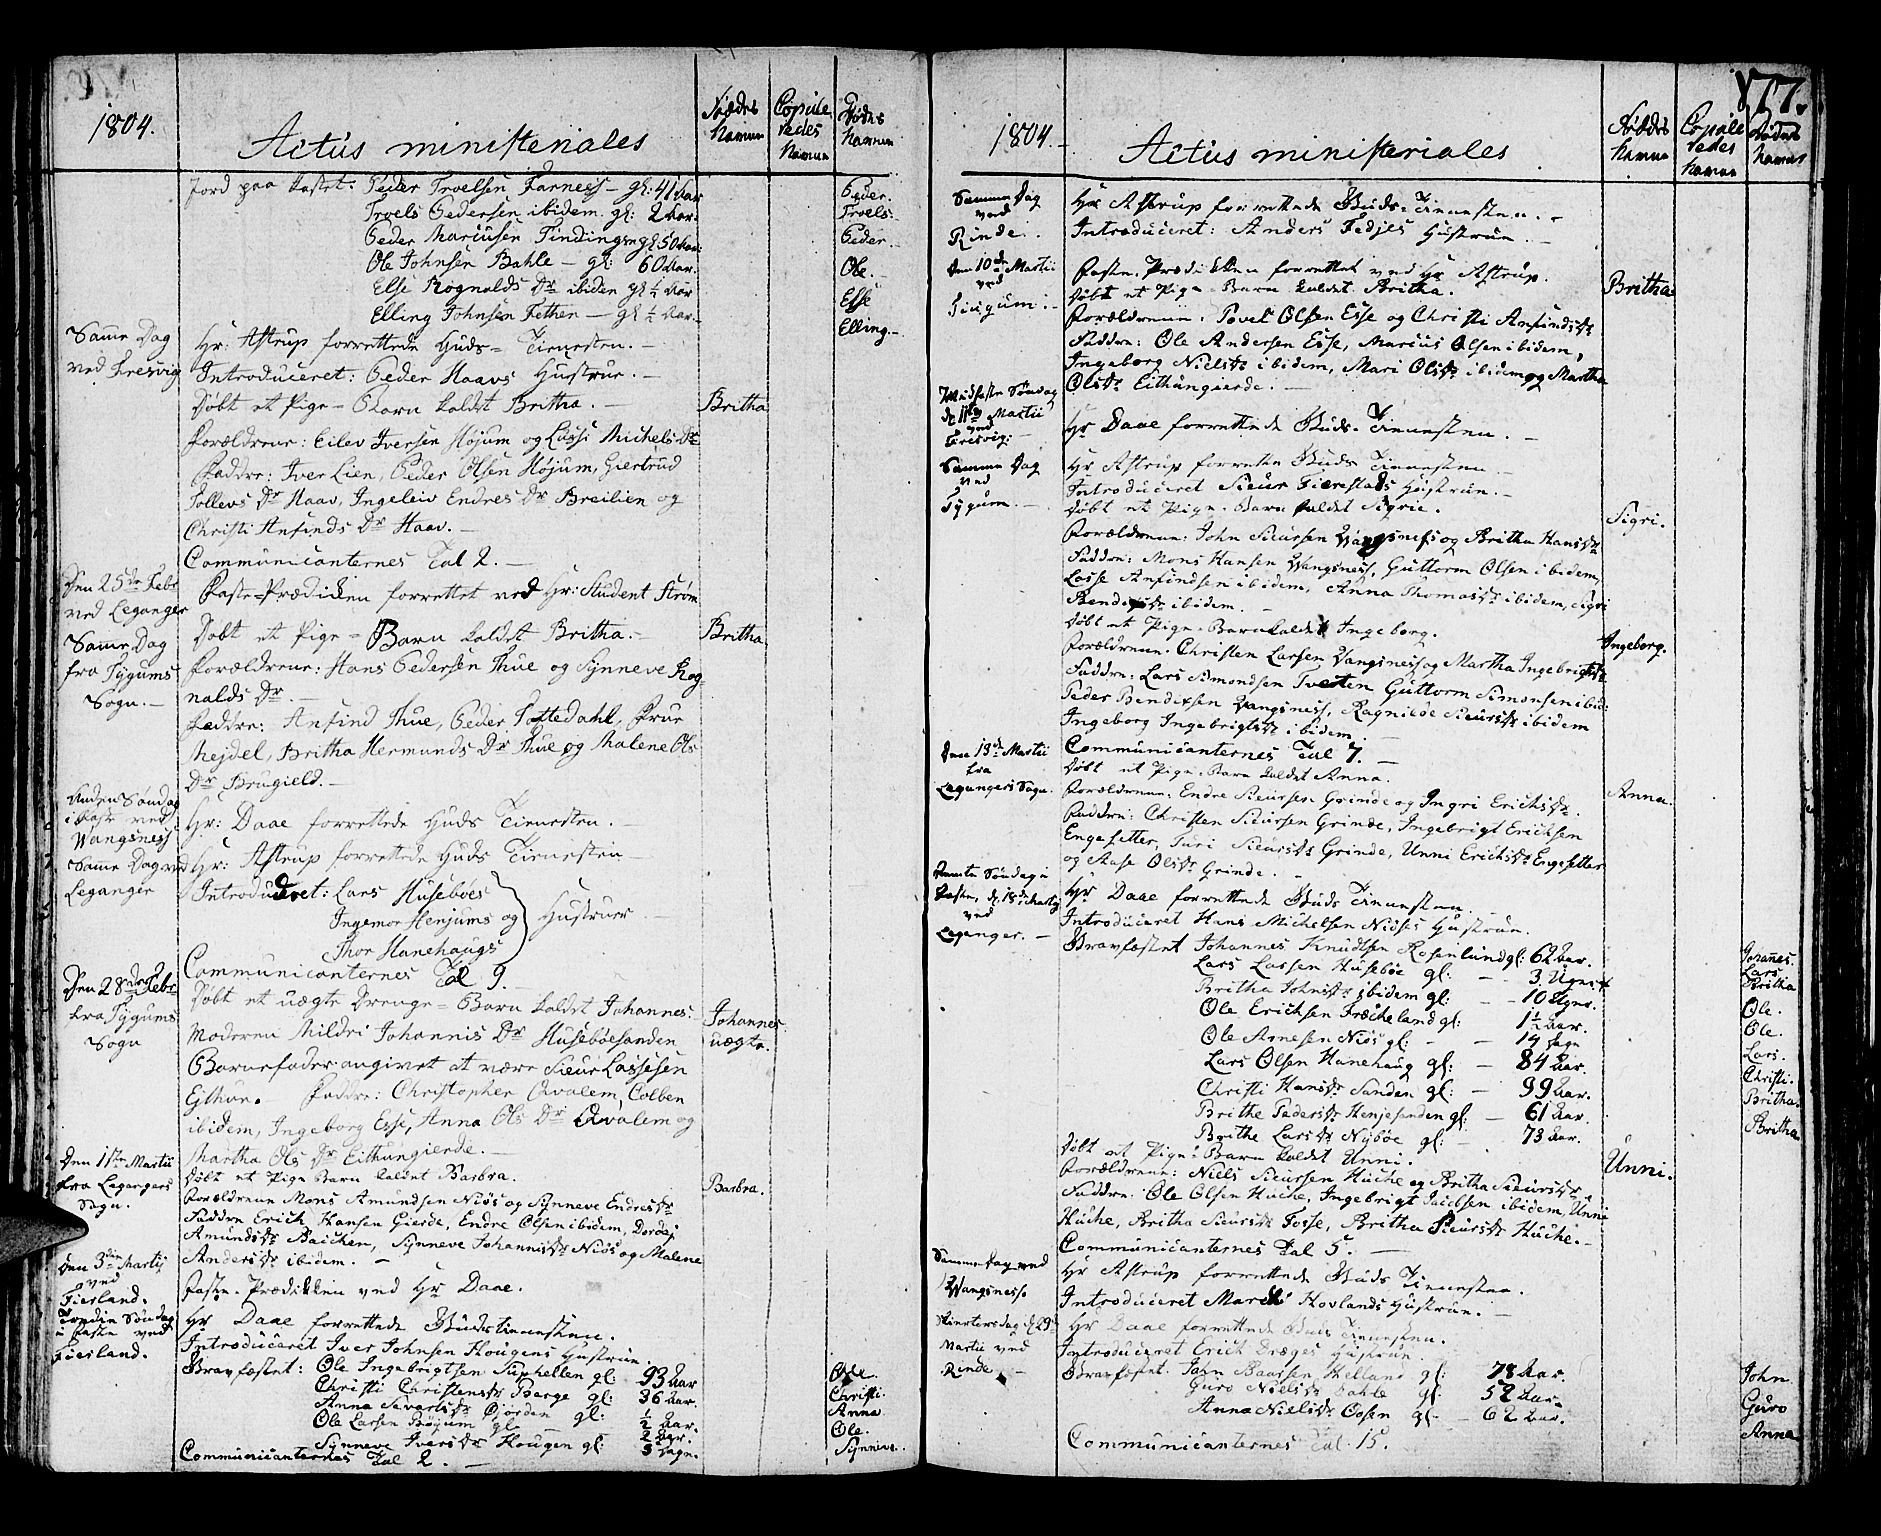 1804.
Actus ministeriales
Fødde Namen
Copuleredes Namen
Dødes Namen
Jord paa kastet: Peder Troelsen Farnees - gl: 41 Aar
Peder.
Troels Pedersen ibidem gl: 2 Aar.
Troels.
Peder Mariusen Tindingen gl: 50 Aar.
Peder.
Ole Johnsen Bahle - gl: 60 Aar.
Ole.
Else Rognalds Dr ibiden gl ½ Aar
Else
Elling Johnsen Fether - gl ½ Aar.
Elling.
Samme Dag ved Fresvig
Hr: Astrup forrettede Guds- Tienesten.
Introduceret: Peder Haavs Hustrue.
Døbt et Pige- Barn kaldet Britha.
Britha
Forældrene: Eilev Iversen Højum og Lussi Michels Dr
Faddre: Iver Lien, Peder Olsen Højum, Giertrud
Tollevs Dr Haav, Ingeleiv Endres Dr Breilien og
Christi Anfinds Dr Haav.
Communicanternes Tal 2.
Den 25de Febr ved Leganger
Faste-Prædiken forrettet ved Hr: Student Strøm
Samme Dag fra Tygums Sogn.
Døbt et Pige- Barn kaldet Britha.
Britha.
Forældrene: Hans Pedersen Thue og Synneve Rog-
nalds Dr.
Faddre: Anfind Thue, Peder Tottedahl,
Mejdel, Britha Hermunds Dr Thue og Malene Ols
Dr Brugield.
Anden Søndag i Faste ved Wangsness
Hr: Daae forrettede Guds Tienesten.
Samme Dag ved Leganger
Hr: Astrup forrettede Guds Tienesten
Introduceret: Lars Huseboes
Ingemor Henjums og
Hustruer
Thor Hanehaugs
Communicanternes Tal 9.
Den 28de Febr fra Tygums Sogn
Døbt et uægte Drenge- Barn kaldet Johannes.
Johannes uægte.
Moderen Mildri Johannis Dr Husebøesanden
Barnefader angivet at være Sieur Lassesen
Ejthun. Faddre: Christopher Qvalem, Colben
ibidem, Ingeborg Esse, Anna Ols Dr Qvalem og
Martha Ols Dr Eithungierde.
Den 1ste Martii fra Legangers Sogn.
Døbt et Pige Barn kaldet Barbra.
Barbra.
Forældrene Mons Amundsen Niøs og Synneve Endres Dr
Faddre Erich Hansen Gierde, Endre Olsen ibidem, Dordej
Amunds Dr Baichen, Synneve Johannis Dr Niøs og Malene
Anders Dr ibidem.
Den 3die Martij ved Fierland.
Faste- Prædikken ved Hr Daae.
Tredie Søndag i Faste ved Fierland.
Hr Daae forrettede Gudstienesten.
Introduceret Iver Johnsen Hougens Hustrue.
Gravfæstet: Ole Ingebrigtsen Suphellen gl: 93 Aar
Ole
Christi Christens Dr Berge gl: 36 Aar.
Christi.
Anna Sivarts Dr Øjorden gl: ½ Aar.
Anna
Ole Larsen Bøyum gl: 2 Aar.
Ole.
Synneve Ivers Dr Hougen gl: 3 Dage.
Synneve.
Communicanternes Tal 2.
177.
1804.
Actus ministeriales
Fødde Namen
Copulerede Namen
Dødes Namen
Samme Dag ved Rinde.
Hr Astrup forrettede Guds-Tienesten.
Introduceret: Anders Fedjes Hustrue.
Den 10de Martii ved Tiugum.
Faste-Prædikken forrettet ved Hr Astrup.
Døbt et Pige-Barn kaldet Britha.
Britha.
Forældrene: Povel Olsen Esse og Christi Anfinds Dr
Faddre: Ole Andersen Esse, Marcus Olsen ibidem,
Ingeborg Niels Dr ibidem, Mari Ols Dr ibidem og Martha
Ols Dr Eithungierde.
Midfaste Søndag d. 11te Martii ved Fresvig.
Hr Daae forrettede Guds-Tienesten.
Samme Dag ved Tygum.
Hr Astrup forrette Guds Tienesten.
Introduceret Sieur Fierestads Hustrue.
Døbt et Pige-Barn kaldet Sigrie.
Sigri.
Forældrene: John Sieursen Wangsness og Britha Hans Dr
Faddre: Mons Hansen Wangsness, Guttorm Olsen ibidem,
Lasse Anfindsen ibidem, Anna Thomas Dr ibidem, Sigri
Bendix Dr ibidem.
Døbt et Pige-Barn kaldet Ingeborg.
Ingeborg.
Forældrene. Christen Larsen Wangsness og Martha Ingebrigts Dr
Faddre: Lars Simondsen Tveten, Guttorm Simonsen ibid:
Peder Bendixsen Wangsness, Ragnilde Sieurs Dr ibidem
Ingeborg Ingebrigts Dr ibidem.
Communicanternes Tal 7.
Den 13de Martii fra Legangers Sogn.
Døbt et Pige-Barn kaldet Anna.
Anna.
Forældrene: Endre Sieursen Grinde og Ingri Erichs Dr.
Faddre: Christen Sieursen Grinde, Ingebrigt Erichsen
Engesetter, Turi Sieurs Dr Grinde, Unni Erichs Dr Engesetter
og Aase Ols Dr Grinde.
Femte Søndag i Faste, d. 18de Martij ved Leganger.
Hr Daae forrettede Guds Tienesten
Introduceret Hans Michelsen Niøses Hustrue.
Gravfæstet Johannes Knudtsen Rosenlund gl: 62 Aar.
Johanes.
Lars Larsen Husebøe gl: - 3 Uger.
Lars
Britha Johns Dr ibidem gl: - 10 Uger.
Britha
Ole Erichsen Frøcheland gl: 1½ Aar.
Ole.
Ole Arnesen Niøs gl: - 14 Dage
Ole.
Lars Olsen Hanehaug gl: - 84 Aar.
Lars.
Christi Hans Dr Sanden gl: - 99 Aar.
Christi.
Brithe Peders Dr Henjesanden gl: - 61 Aar.
Britha.
Brithe Lars Dr Nybøe gl: - 73 Aar.
Britha
Døbt et Pige-Barn kaldet Unni.
Unni.
Forældrene: Niels Sieursen Huche og Britha Sieurs Dr
Faddre: Ole Olsen Huche, Ingebrigt Jacobsen ibidem, Unni
Huche, Britha Sieurs Dr Fosse, Britha Sieurs Dr Huche.
Communicanternes Tal 5.
Samme Dag ved Wangsness.
Hr Astrup forrettede Guds Tienesten.
Introduceret Hovlands Hustrue.
Skiertorsdag d. 29de Martii ved Rinde.
Hr Daae forrettede Guds Tienesten.
Introduceret Erich Dræges Hustrue.
Gravfæstet. John Baarsen Helland gl: 78 Aar.
John
Guro Niels Dr Bahle gl: 52 Aar.
Guro
Anna Niels Dr Oosen gl: - 62 Aar.
Anna
Communicanternes Tal. 15.